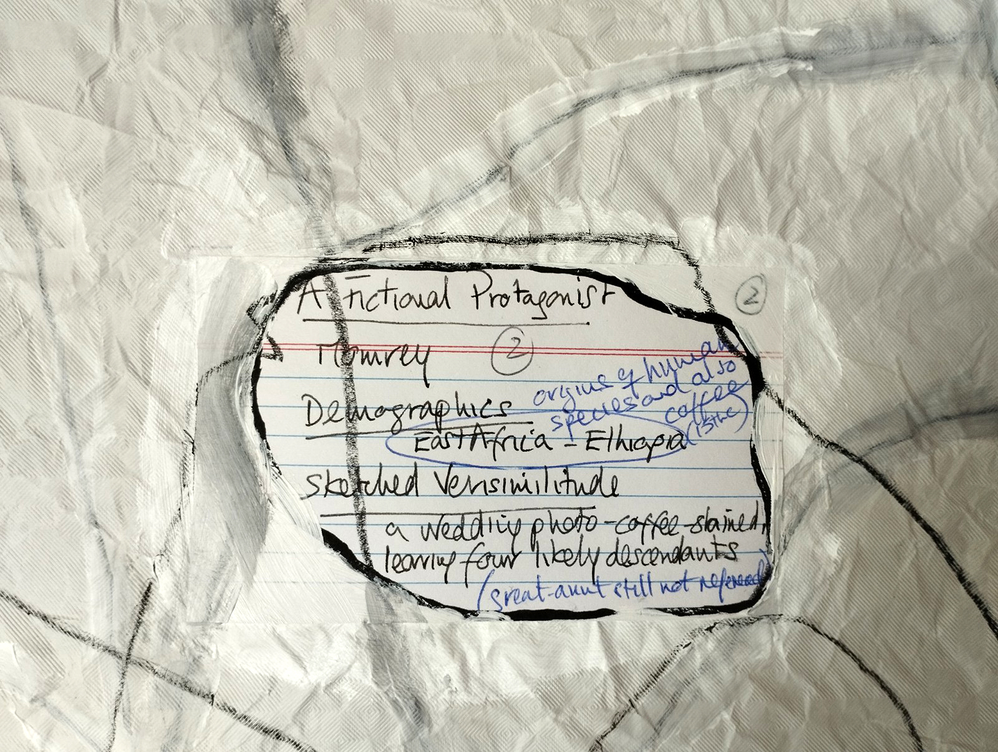 A Fictional Protagonist
2
Momrey 2
origins of human
species and also
Demographics coffee
East Africa - Ethiopia (15thc)
Sketched Verisimilitude
a wedding photo-coffee-stained,
leaving four likely descendants
(great-aunt still not refereed